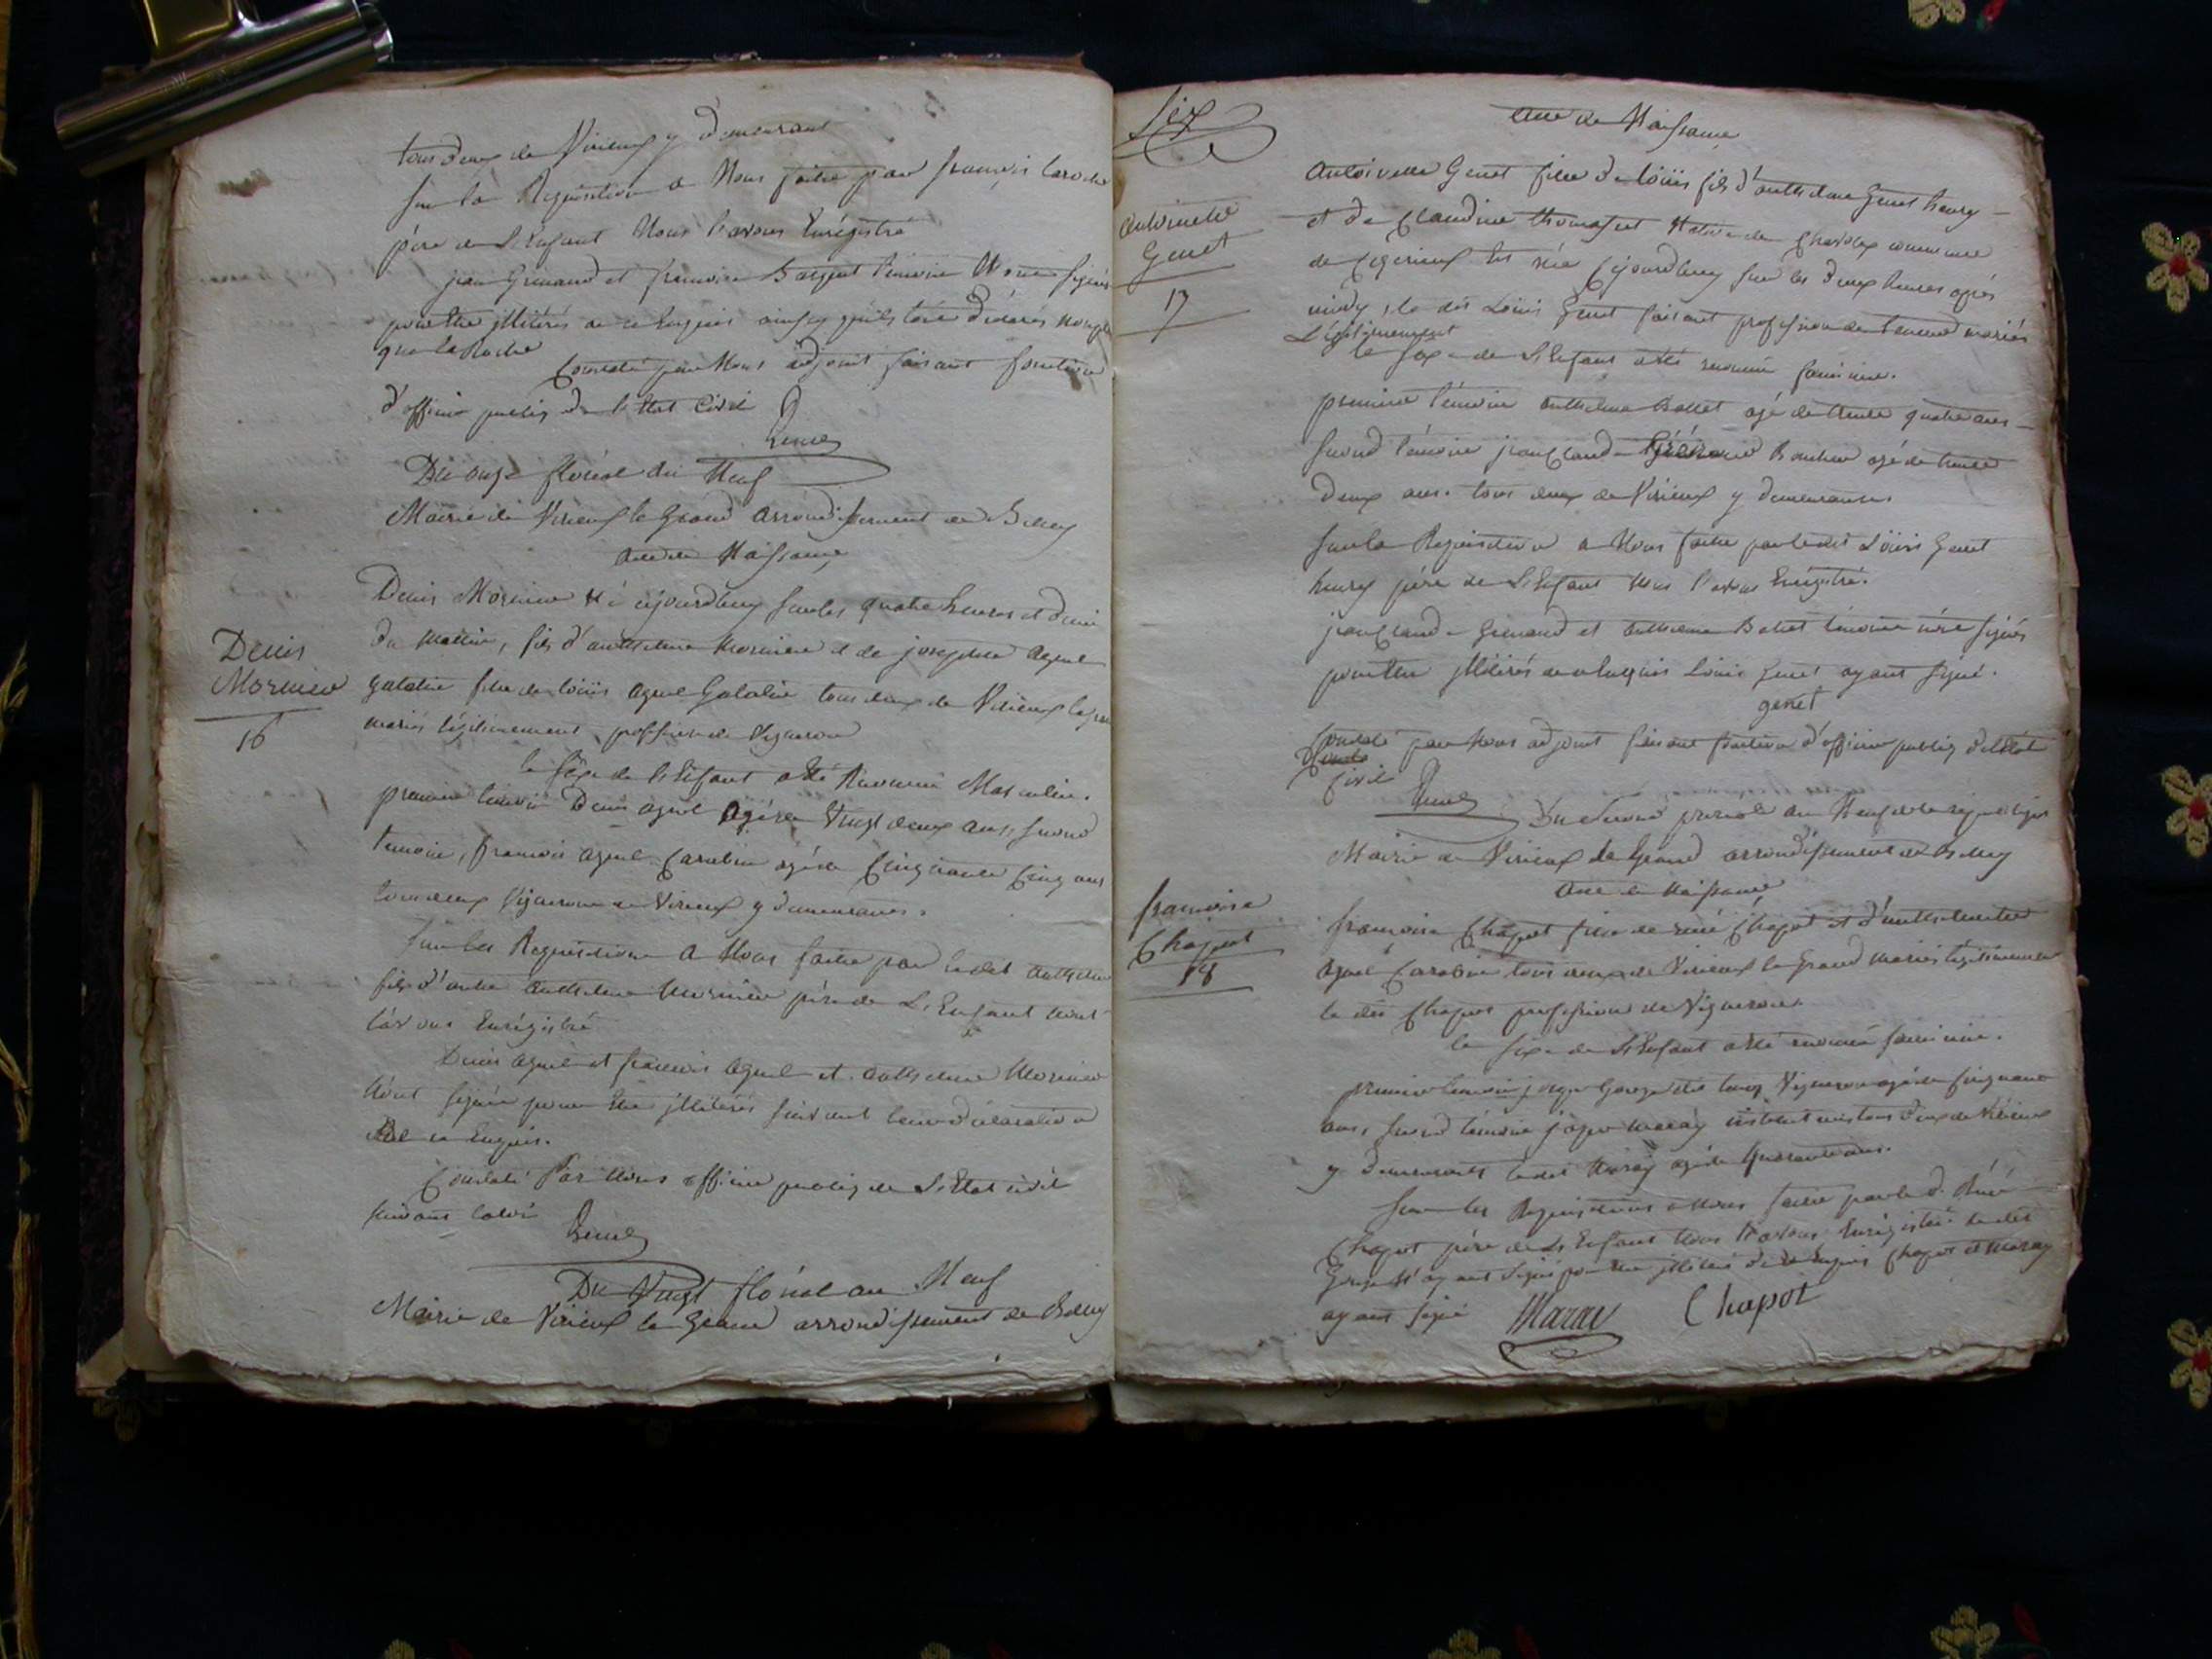 tous deux de Virieux y demeurant
sur la Requisition a Nous faitte par francois laroche
père de L'Enfant Nous l'avons Enrégistré
jean Grinand et francoise témoins N'ont signés
pour Etre jllitérés de ce Enquis ainsy quils l'ont déclarés
que la Roche
Constaté par Nous adjoint faisant fonction
d'officier publiq de l'Etat Civil
Du onze floréal an Neuf
Mairie de Virieux le Grand arrondissement de Belley
acte de Naissance
Denis Mornieu Né cejourdhuy sur les quatre heures et demi
Denis
Mornieu
16
du mattin, fils d'anthelme Mornieu et de josephte aguel
galatin fille de Loüis aguel Galatin tous deux de Virieux le
mariés légitimement, proffession de Vigneron
le sexe de l'Enfant a Eté Reconnu Masculin.
premier témoin Denis aguel agé de Vingt deux ans, second
temoin, francois aguel Carabin agé de Cinquante Cinq ans
tous deux Vignerons de Virieux y demeurants.
Sur les Requisition a Nous faitte par ledit anthelme
fils d'autre anthelme Mornieu père de L'Enfant Nous
l'avons Enrégistré
Denis aguel et francois aguel et anthelme Mornieu
N'ont signés pour Etre jllitérés suivant leur déclaration
de ce Enquis.
Constaté Par Nous officier publiq de L'Etat civil
suivant la loi
Du Vingt floréal an Neuf
Mairie de Virieux le Grand arrondissement de Belley
Six
acte de Naissance
Antoinette
Genet
17
Antoinette Genet fille de Loüis fils d'anthelme Genet henry
et de Claudine thomasset Native de commune
de Ceyzerieux Est née Cejourdhuy sur les deux heures après
midy, le dit Loüis Genet faisant profession de mariés
Légitimement
le sexe de L'Enfant a Eté reconnu féminine.
premier témoin anthelme Ballet agé de trente quatre ans
second témoin jean Claude Grinand agé de trente
deux ans. tous deux de Virieux y demeurants
sur la Requisition a Nous faitte par le dit Loüis Genet
henry père de L'Enfant Nous l'avons Enrégistré.
jean Claude Grinand et anthelme Ballet témoins n'ont signés
pour Etre jllitérés de ce Enquis Loüis Genet ayant signé.
genet
Constaté par Nous adjoint faisant fonction d'officier publiq de l'état
civil
Du second prairial an Neuf de la république
Mairie de Virieux le Grand arrondissement de Belley
acte de Naissance
francoise
Chapot
18
francoise Chapot fille de rené Chapot et d'anthelmette
aguel Carabin tous deux de Virieux le Grand mariés légitimement
le dit Chapot profession de Vigneron.
le sexe de L'Enfant a Eté reconnu féminine.
premier temoin George dit Vigneron agé de Cinquante
ans, second témoin maray tous deux de Virieux
y demeurants ledit Maray agé de quarante ans.
Sur les Requisitions a Nous faitte par le d. René
Chapot père de L'Enfant Nous l'avons Enrégistré le dit
George N'ayant signé pour Etre jllitéré de ce Enquis Chapot et Maray
ayant signé Maray Chapot